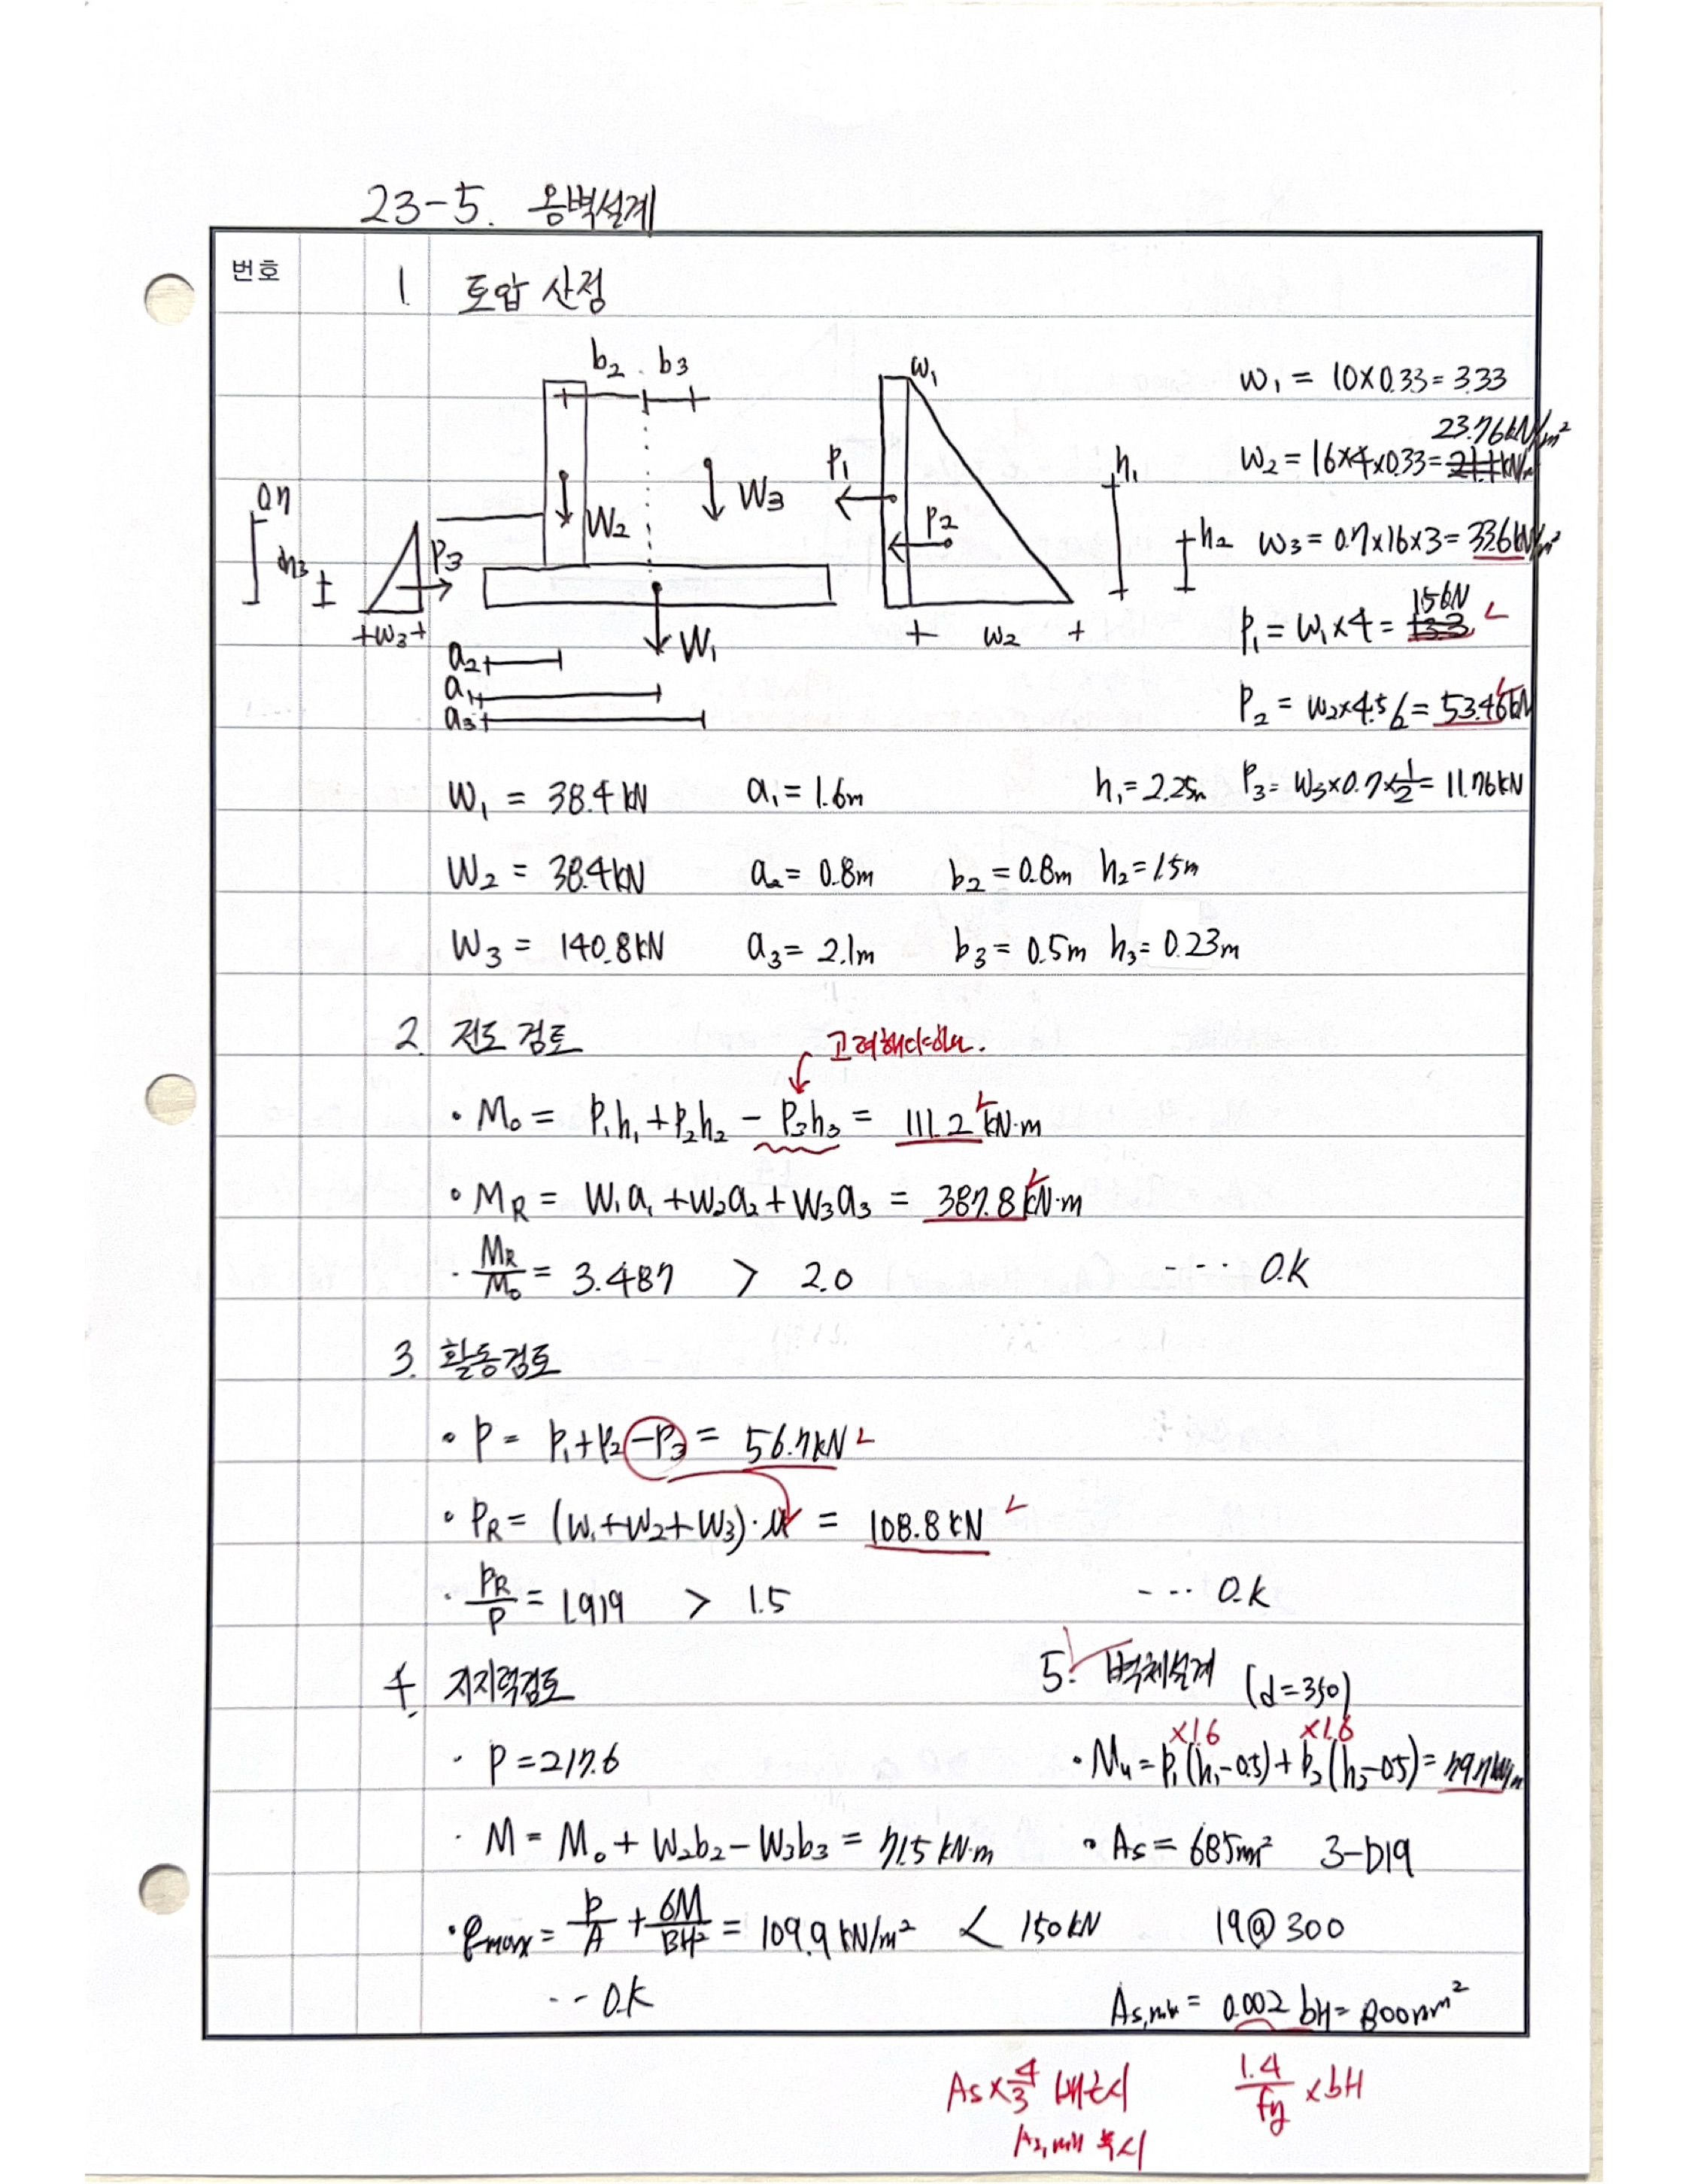 23-5. 옹벽설계
번호
1. 토압 산정
b₂ b₃
W₂ W₃ W₁
P₃ w₃
a₂
a₁
a₃
w₁
P₁
P₂
w₂
h₁
h₂
0.7
h₃
w₁ = 10×0.33 = 3.33
23.76kN/m²
w₂ = 16×4×0.33 = 21.1kN
w₃ = 0.7×16×3 = 33.6kN/m²
15kN
P₁ = w₁×4 = 13.3
P₂ = w₂×4.5/2 = 53.46kN
W₁ = 38.4kN a₁ = 1.6m h₁ = 2.25m P₃ = w₃×0.7×1/2 = 11.76kN
W₂ = 38.4kN a₂ = 0.8m b₂ = 0.8m h₂ = 1.5m
W₃ = 140.8kN a₃ = 2.1m b₃ = 0.5m h₃ = 0.23m
2. 전도 검토
고려해야하나.
• M₀ = P₁h₁ + P₂h₂ - P₃h₃ = 111.2 kN·m
• M_R = W₁a₁ + W₂a₂ + W₃a₃ = 387.8 kN·m
· M_R/M₀ = 3.487 > 2.0 --- O.K
3. 활동검토
• P = P₁+P₂-P₃ = 56.7kN
• P_R = (W₁+W₂+W₃)·μ = 108.8kN
· P_R/P = 1.919 > 1.5 --- O.K
4. 지지력검토
· P = 217.6
· M = M₀ + W₂b₂ - W₃b₃ = 71.5 kN·m
• q_max = P/A + 6M/BH² = 109.9 kN/m² < 150kN
-- O.K
5. 벽체설계 (d=350)
×1.6 ×1.6
• Mu = P₁(h₁-0.5) + P₂(h₂-0.5) = 79.7kN/m
• As = 685mm² 3-D19
19@300
As,min = 0.002 bH = 800mm²
As×4/3 배근시
As,min 무시
1.4/fy ×bH